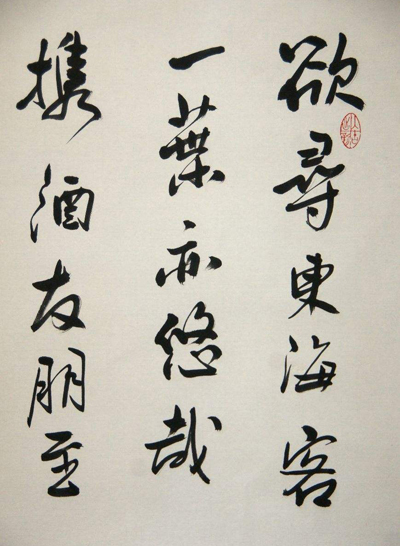 欲尋東海客
一葉亦悠哉
携酒友朋至